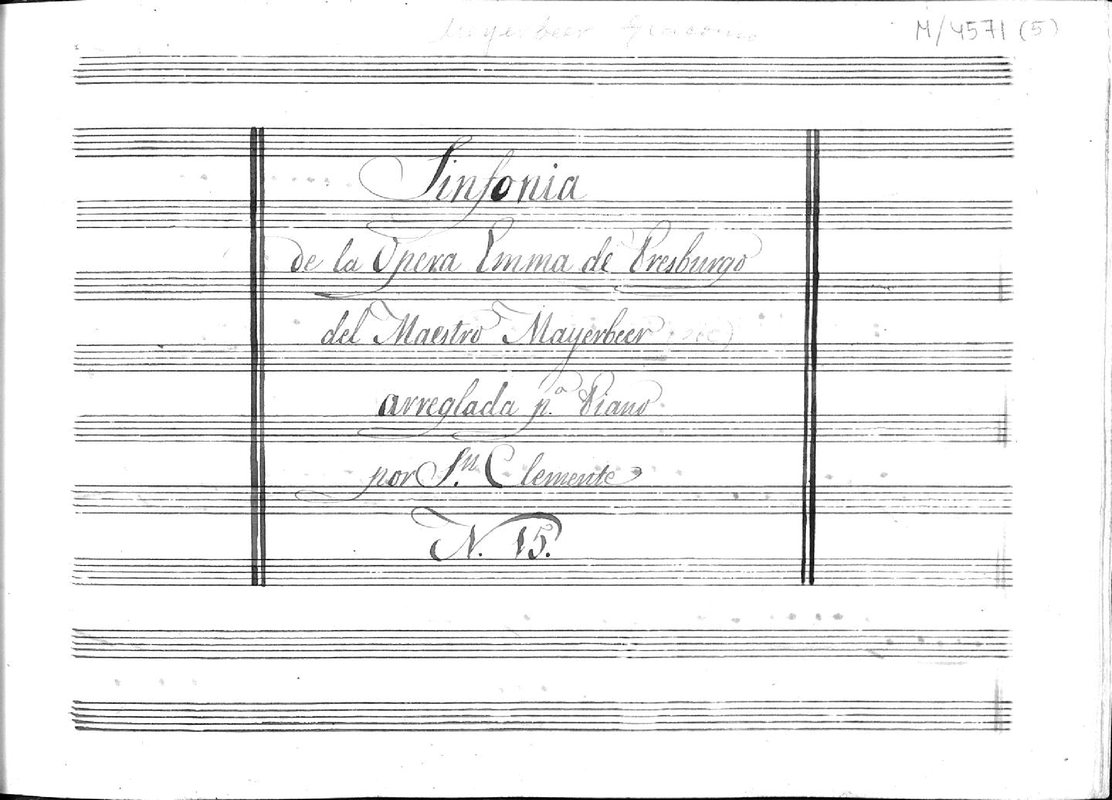 Meyerbeer Giacomo
M/4571 (5)
Sinfonia
de la Opera Emma de Presburgo
del Maestro Mayerbeer
arreglada p.ª Piano
por S.n Clemente
N. 15.